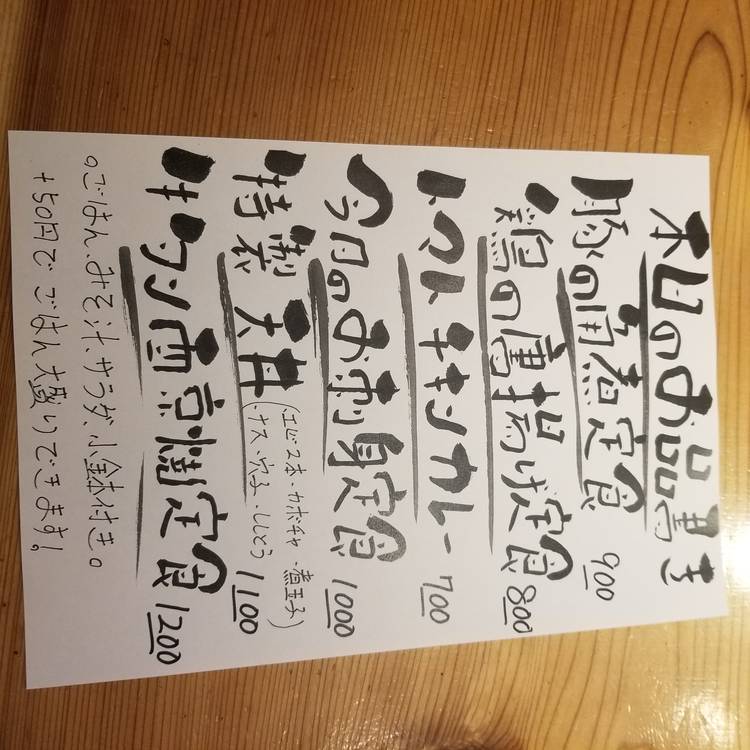 本日のお品書き
豚の角煮定食 900
鶏の唐揚げ定食 800
トマトチキンカレー 700
今日のお刺身定食 1000
特製天丼 (エビ2本・カボチャ・煮玉子
・ナス・穴子・ししとう) 1100
サワラ西京焼定食 1200
○ごはん、みそ汁、サラダ、小鉢付き。
+50円でごはん大盛りできます!